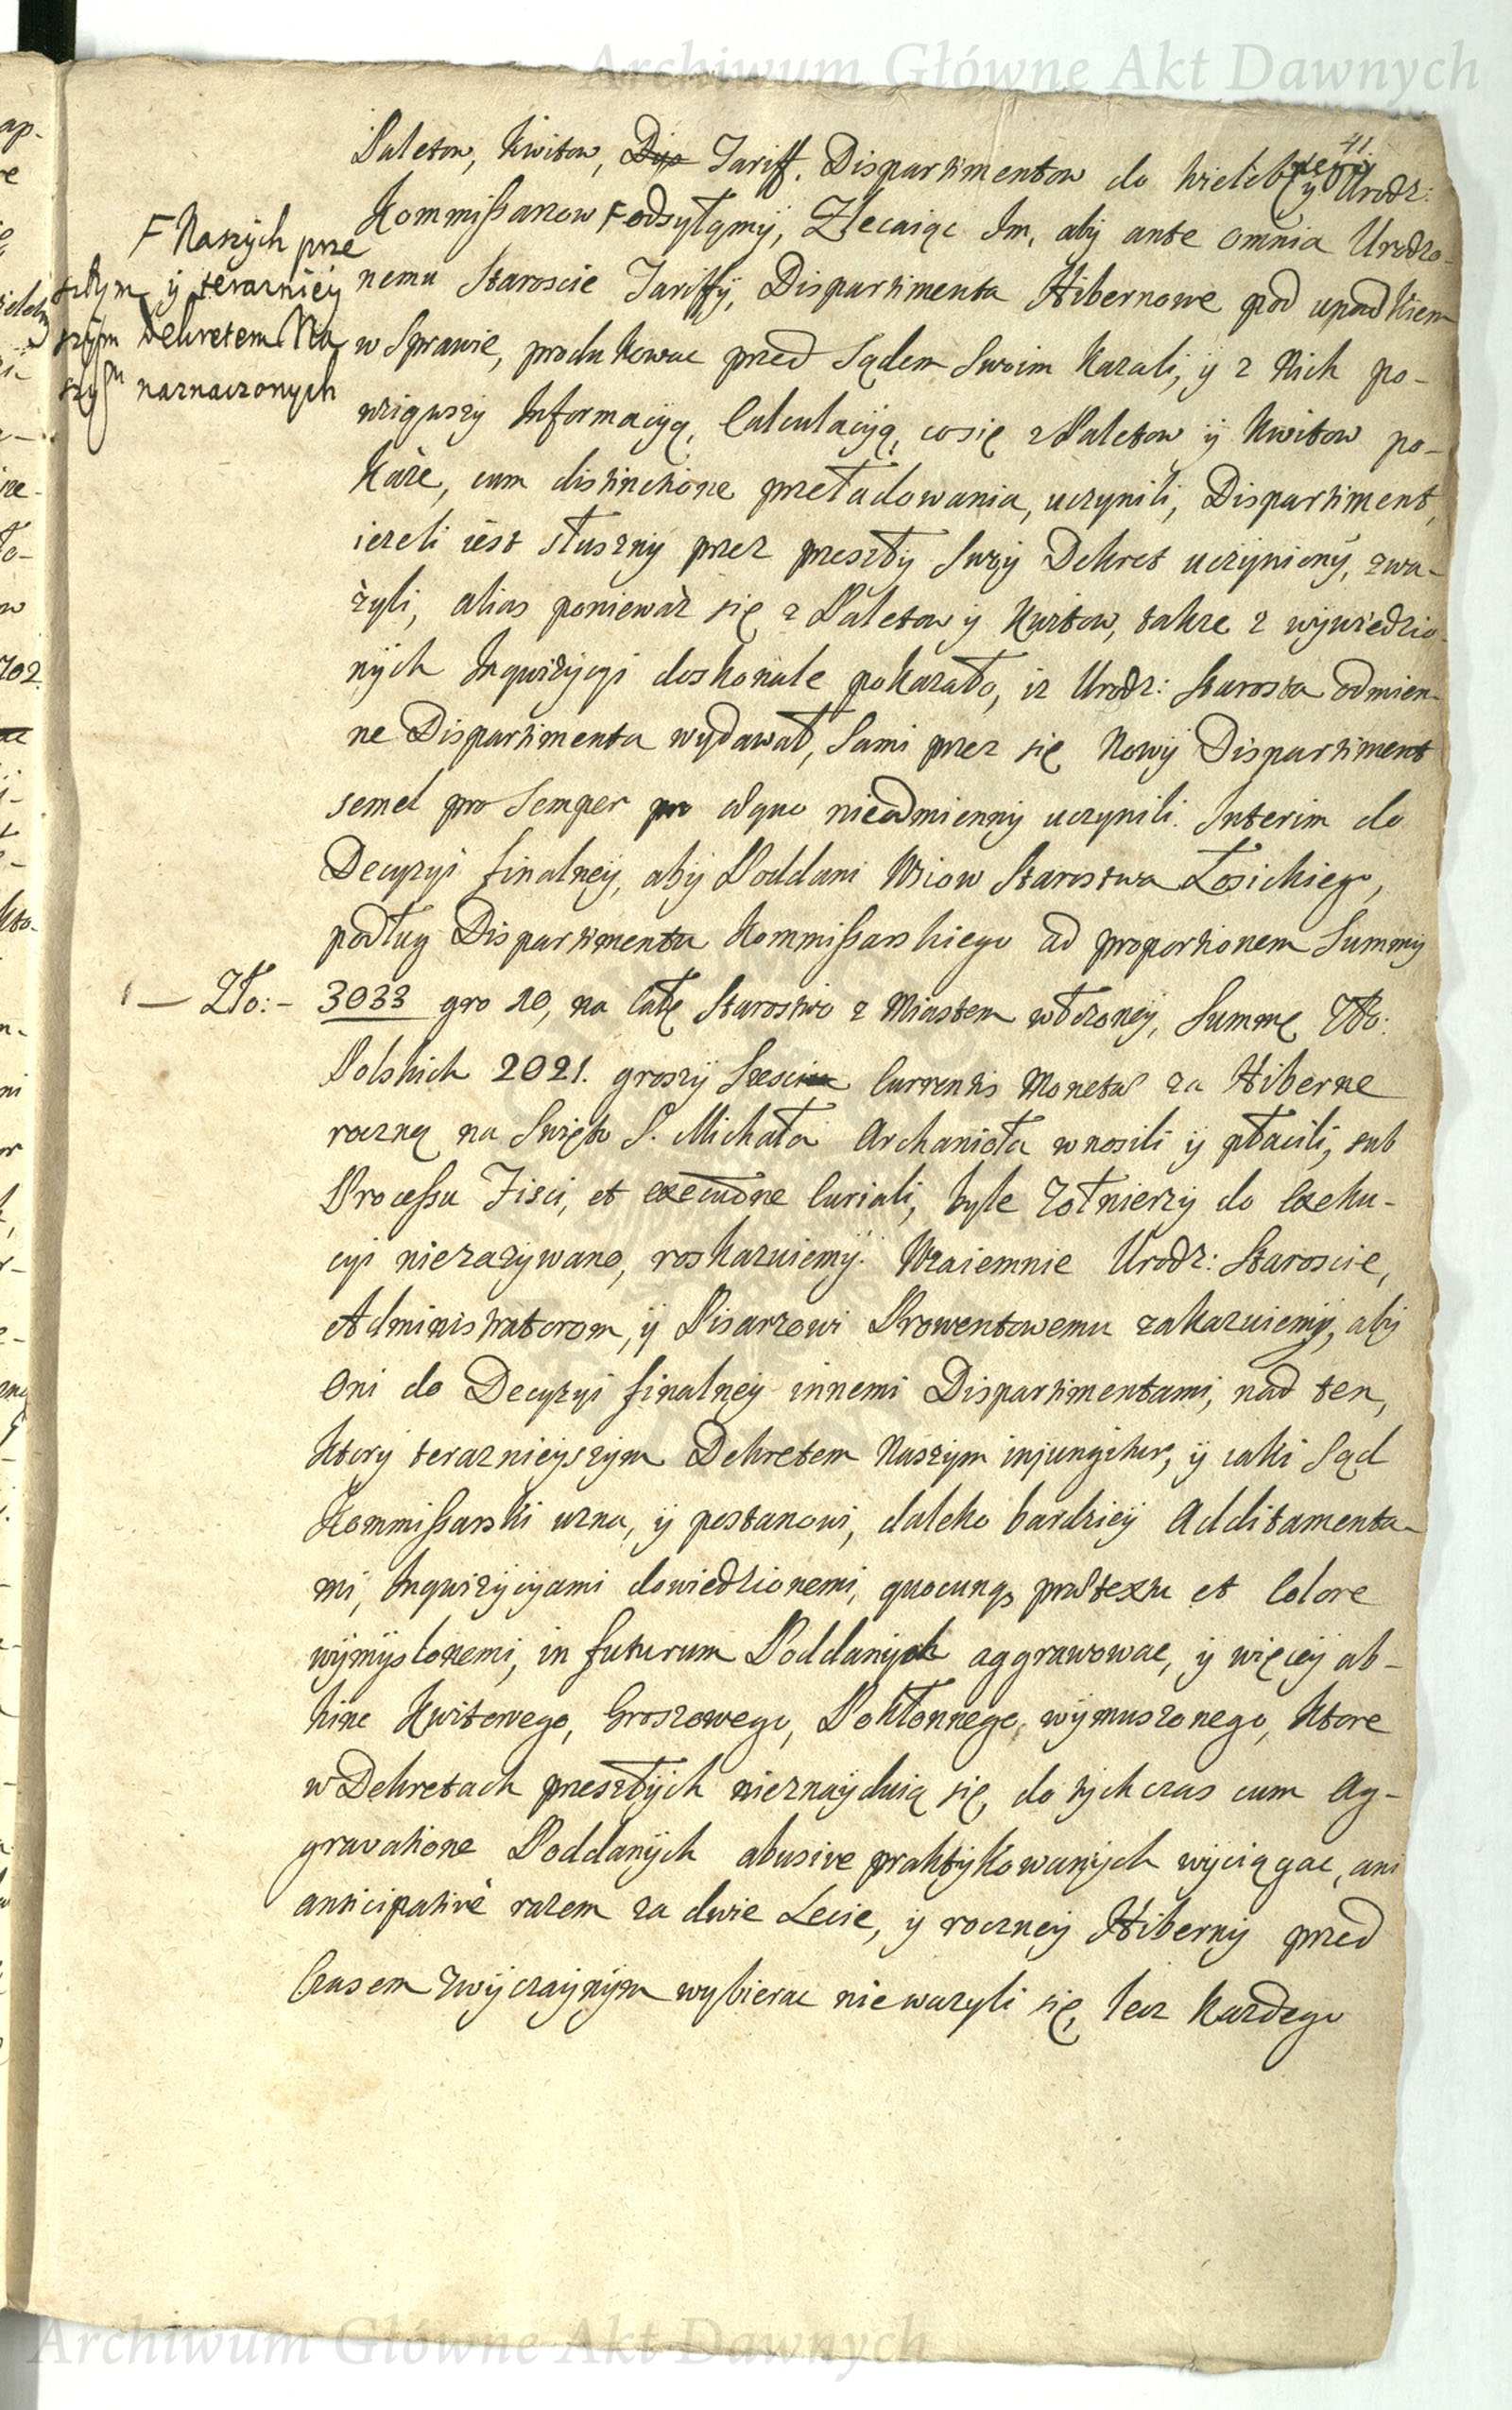 Archiwum Główne Akt Dawnych
41.
Paletow, Kwitow, Dys Tariff. Dispartimentow do Wieleb nego y Urodz:
Kommißarzow F odsyłamÿ, Zlecaiąc Im, aby ante omnia Urodzo-
F Naszych prze
szłym ÿ teraznieÿ
szÿm Dekretem Na
szÿm naznaczonych
nemu Staroscie Tariffÿ, Dispartimenta Hibernowe pod upadkiem
w Sprawie, produkowac przed Sądem Swoim Kazali, ÿ z Nich po-
wziąwszy Informacÿą, Calculacÿą, cosię z Paletow ÿ Kwitow po-
każe, cum distinctione przeładowania, uczynili, Dispartiment,
iezeli iest słuszny przez przeszły Swoÿ Dekret uczÿniony, zwa-
żyli, alias poniewaz się z Paletow y Kwitow, takze z wÿwiedzio-
nÿch Inqwizÿcÿi doskonale pokazało, iz Urodz: Starosta odmien-
ne Dispartimenta wydawał, Sami przez się Nowÿ Dispartiment
semel pro Semper pro æquo nieodmienny uczynili. Interim do
Decyzyi finalneÿ, abÿ Poddani Wsiow Starostwa Łosickiego,
podług Dispartimenta Kommißarskiego ad proportionem Summÿ
1 — Zło: – 3033 gro 10, na całe Starostwo z Miastem włożoneÿ, Summę Zło:
Polskich 2021. groszÿ Szescia Currentis Monetæ za Hiberne
roczną na Swięto S. Michała Archanioła wnosili ÿ płacili, sub
Processu Fisci, et executione Curiali, byle Zołnierzy do Exeku-
cyi niezazywano, roskazuiemÿ. Wzaiemnie Urodz: Staroscie,
Administratorom, ÿ Pisarzowi Prowentowemu zakazuiemÿ, abÿ
Oni do Decyzyi finalneÿ innemi Dispartimentami, nad ten,
ktorÿ teraznieÿszym Dekretem Naszym injungitur, ÿ iaki Sąd
Kommißarski uzna, ÿ postanowi, daleko bardzieÿ Additamenta-
mi, Inqwizÿcÿami dowiedzionemi, quocunq, prætextu et Colore
wÿmyslonemi, in futurum Poddanych aggrawowac, ÿ więceÿ ab-
hinc Kwitowego, Groszowego, Pokłonnego, wÿmuszonego, ktore
w Dekretach przeszłÿch nieznaÿduią się, do tych czas cum Ag-
gravatione Poddanÿch abusive praktÿkowanych wyciągac, ani
anticipativè razem za dwie Lecie, ÿ roczneÿ Hibernÿ przed
Czasem zwÿczaÿnÿm wybierac niewazyli się, lecz Kazdego
Archiwum Główne Akt Dawnych